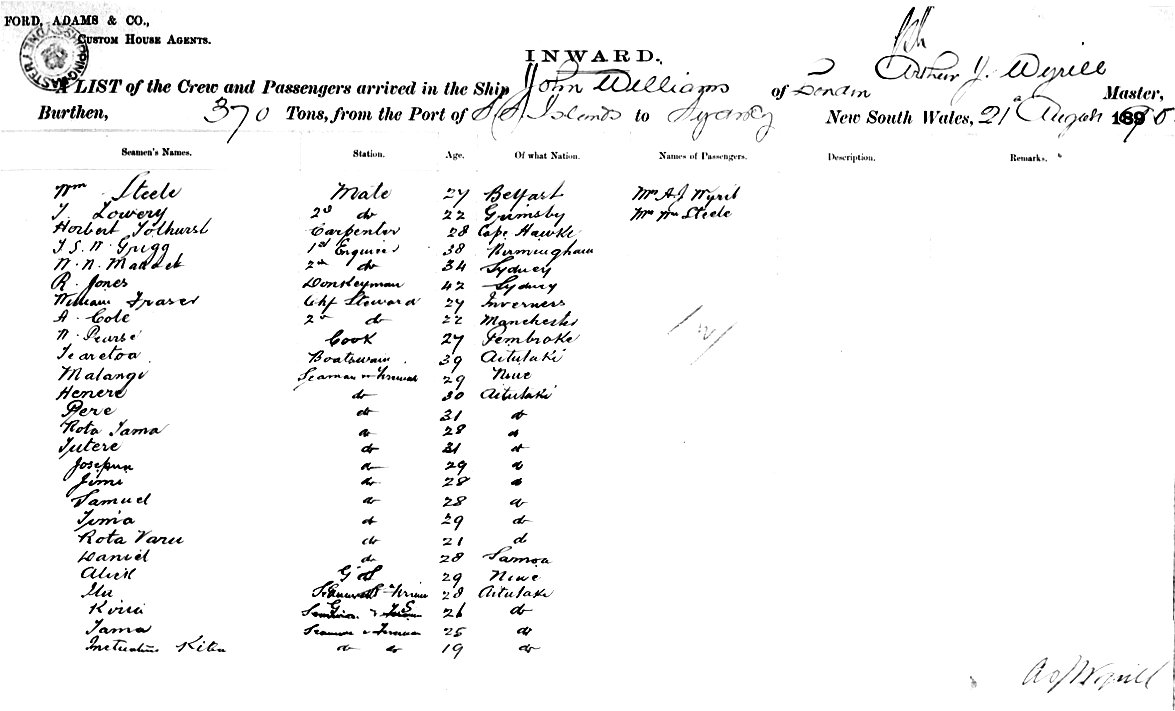 FORD, ADAMS & CO.,
CUSTOM HOUSE AGENTS.
INWARD.
A LIST of the Crew and Passengers arrived in the Ship John Williams of London Arthur J. Wyrill Master,
Burthen, 370 Tons, from the Port of S.S. Islands to Sydney New South Wales, 21st August 189
Seamen's Names. Station. Age. Of what Nation. Names of Passengers. Description. Remarks.
Wm Steele Mate 27 Belfast Mrs A J Wyrill
T. Lowery 2nd do 22 Grimsby Mrs Wm Steele
Herbert Tolhurst Carpenter 28 Cape Hawke
T. S. N. Grigg 1st Engineer 38 Birmingham
2nd do 34 Sydney
R. Jones Donkeyman 42 Sydney
William Fraser Chf Steward 27 Inverness
A. Cole 2nd do 22 Manchester
N. Pearse Cook 27 Pembroke
Tearetoa Boatswain 39 Aitutaki
Malangi Seaman & Fireman 29 Niue
Henere do 30 Aitutaki
Pere do 31 do
Rota Tama do 28 do
Tutere do 31 do
Josepua do 29 do
Jimi do 28 do
Samuel do 28 do
Tima do 29 do
Rota Varu do 21 do
Daniel do 28 Samoa
Alick 29 Niue
28 Aitutaki
26 do
Tama Seaman & Fireman 25 do
Kitu do do 19 do
A J Wyrill